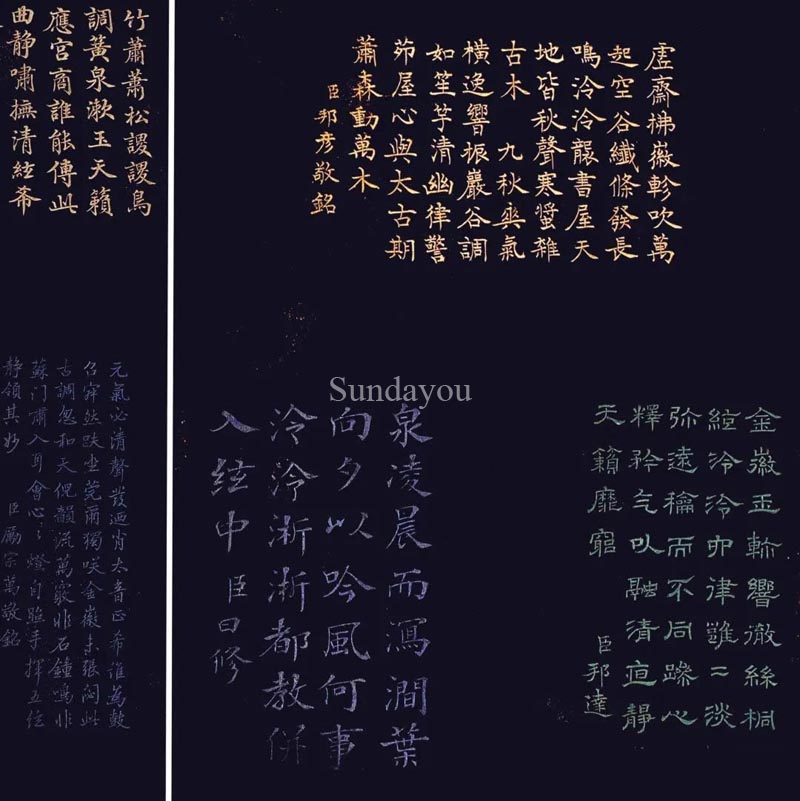 虛齋拂徽軫吹萬
起空谷纖條發長
鳴泠泠襲書屋天
地皆秋聲寒螿雜
古木 九秋爽氣
橫逸響振巖谷調
如笙竽清幽律警
茆屋心與太古期
蕭森動萬木
臣邦彥敬銘
金徽玉軫響徹絲桐
絙泠泠叩律雝二淡
弥遠龢而不同躁心
釋矜气以融清宣靜
天籟靡窮
臣邦達
泉凌晨而瀉澗葉
向夕以吟風何事
泠泠淅淅都教併
入絃中
臣曰修
竹蕭蕭松謖謖鳥
調簧泉漱玉天籟
應宮商誰能傳此
曲静嘯撫清絃希
元氣必清聲發迺肖太音正希誰為鼓
召穽然趺坐莞爾獨咲金徽未張閟此
古調忽和天倪韻流萬竅非石鐘鳴非
蘇门嘯入耳會心〻燈自照手揮五絃
静領其妙 臣勵宗萬敬銘
Sundayou